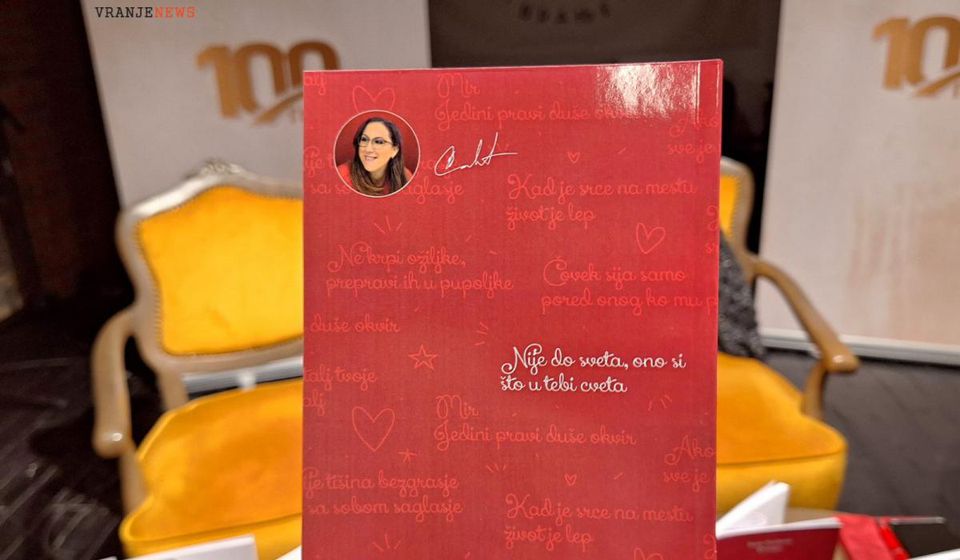 VRANJENEWS
100
100
Mir
Jedini pravi duše okvir
sa sobom saglasje
Kad je srce na mestu
život je lep
Ne krpi ožiljke,
prepravi ih u pupoljke
Čovek sija samo
pored onog ko mu p
duše okvir
Nije do sveta, ono si
što u tebi cveta
tvoje
Mir
Jedini pravi duše okvir
Ako
sve je
je tišina bezgrasje
sa sobom saglasje
Kad je srce na mestu
život je lep